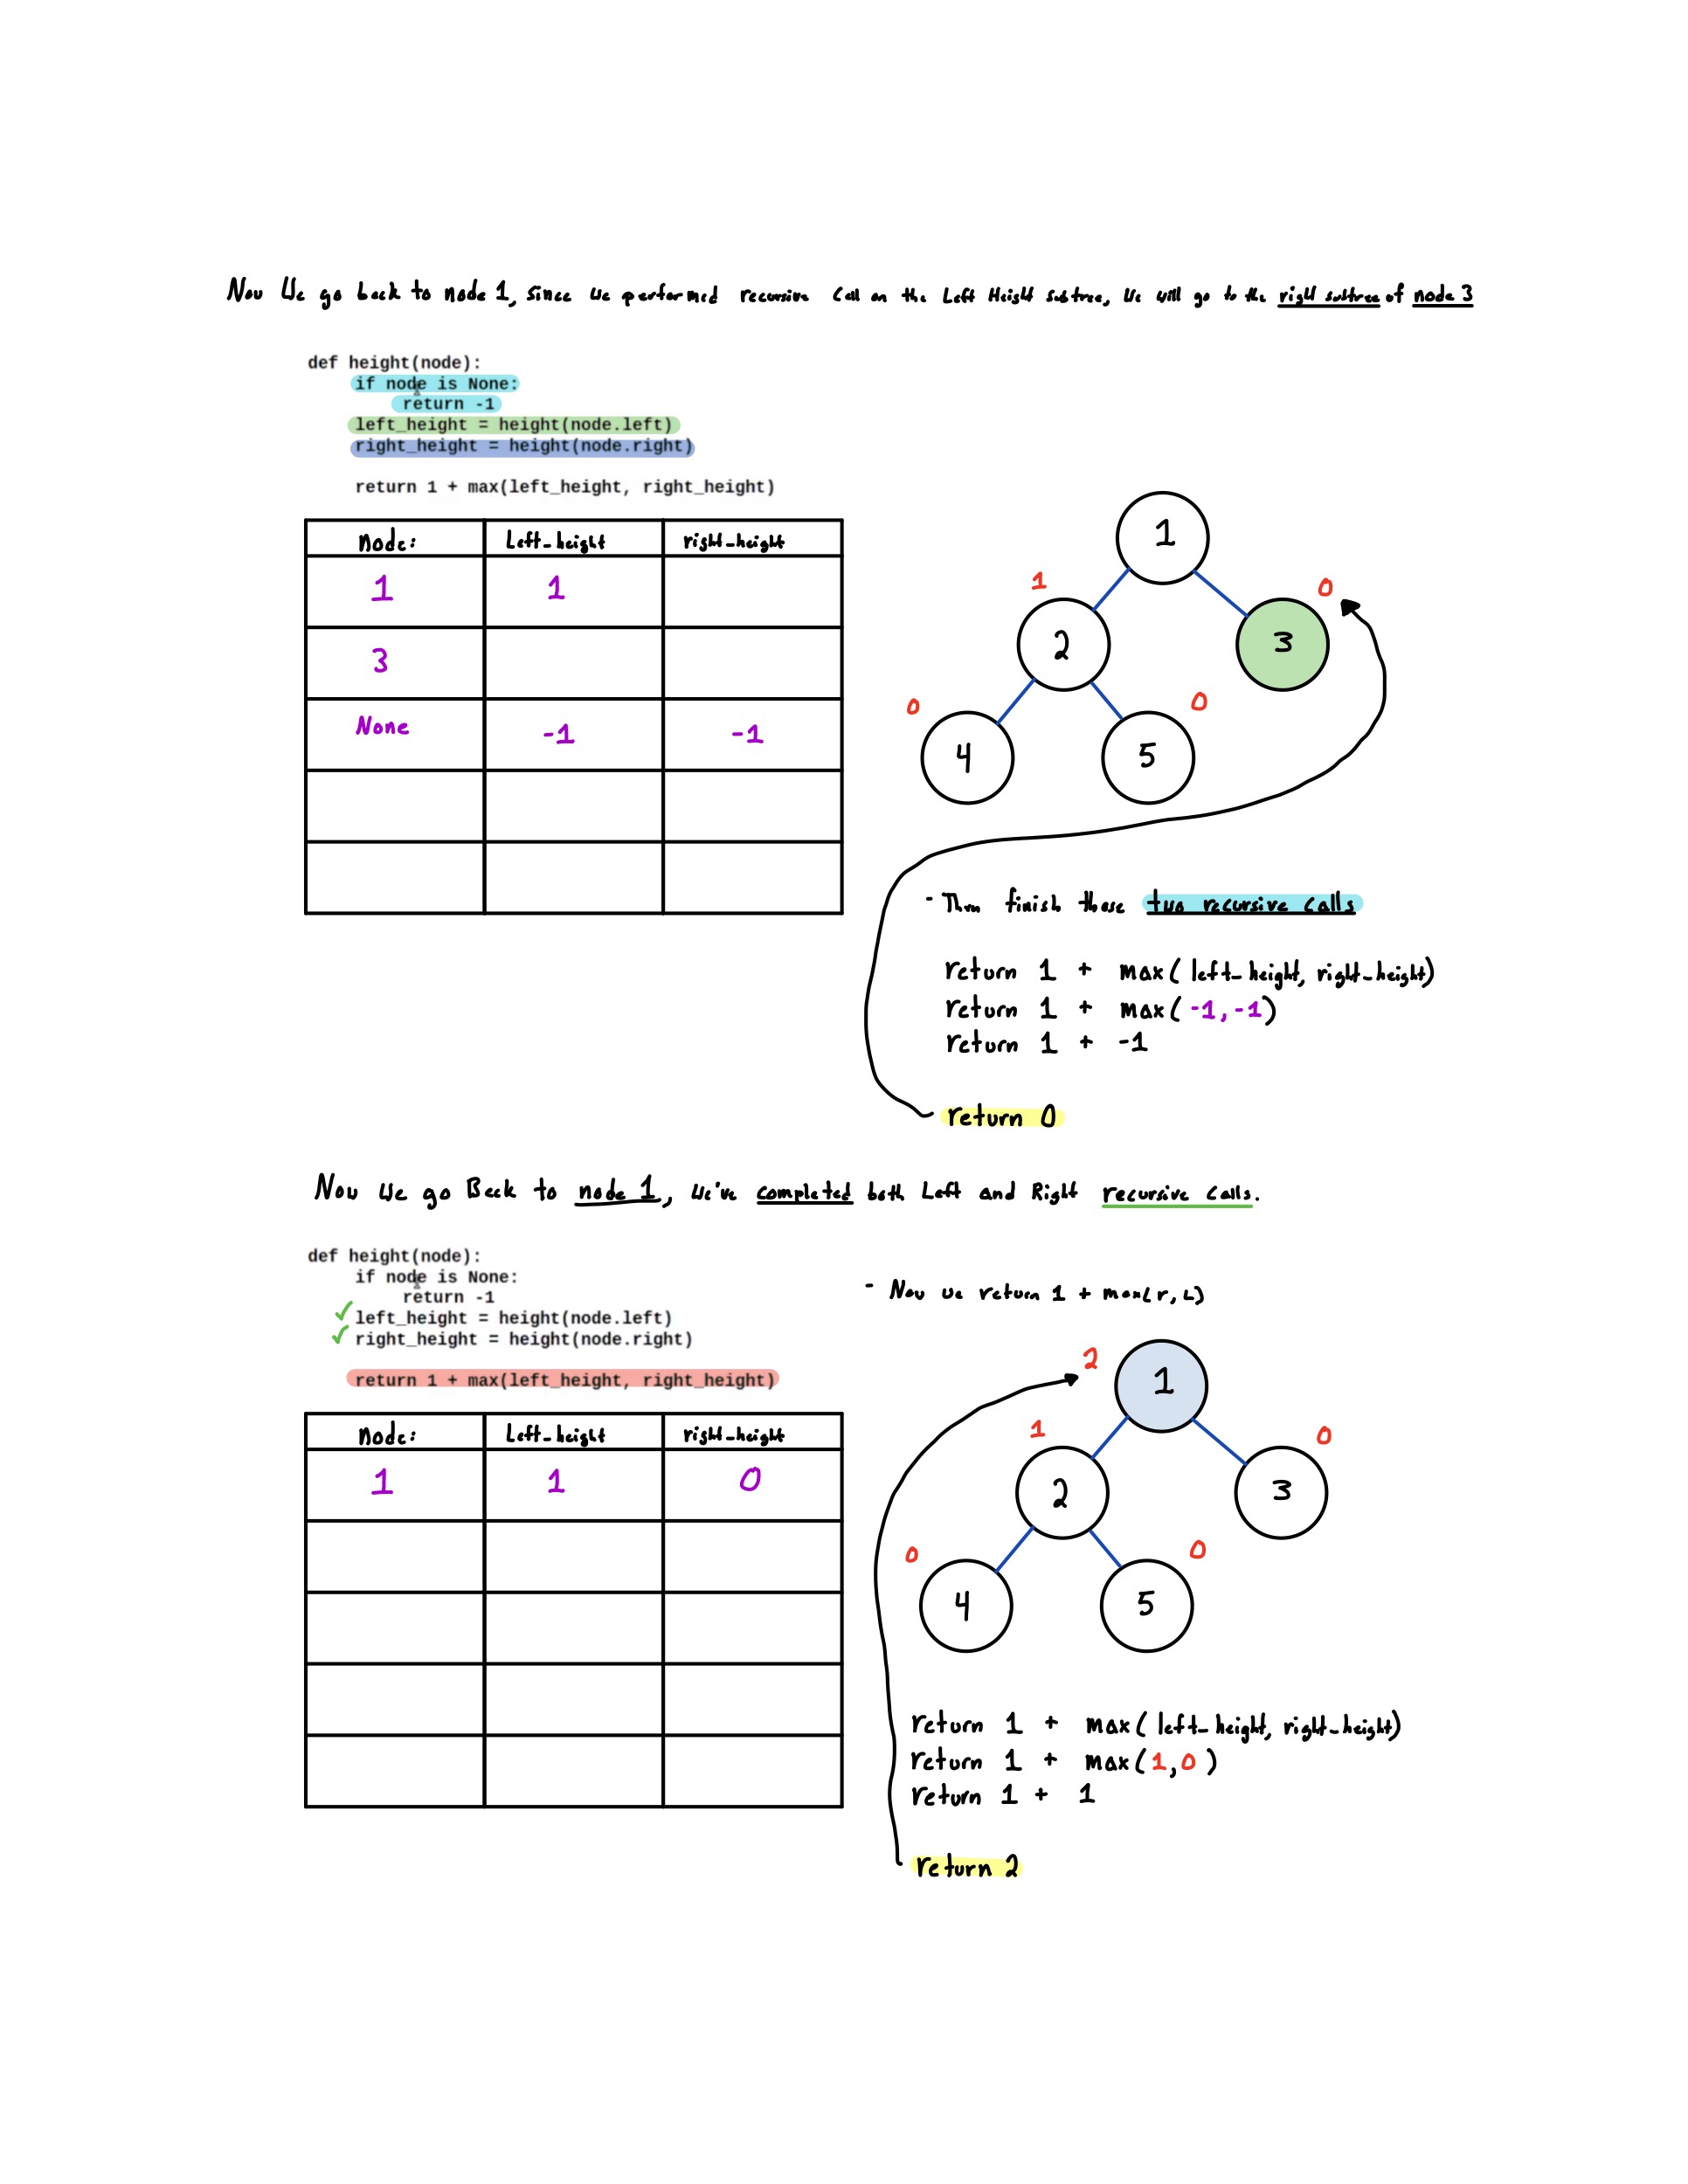 Now We go back to node 1, since we performed recursive call on the Left Height subtree, we will go to the right subtree of node 3
def height(node):
if node is None:
return -1
left_height = height(node.left)
right_height = height(node.right)
return 1 + max(left_height, right_height)
Node: Left-height right-height
1 1
3
None -1 -1
1
1 0
2 3
0 0
4 5
- Then finish those two recursive calls
return 1 + max( left-height, right-height)
return 1 + max( -1, -1)
return 1 + -1
return 0
Now We go Back to node 1, We've completed both Left and Right recursive calls.
def height(node):
if node is None:
return -1
left_height = height(node.left)
right_height = height(node.right)
return 1 + max(left_height, right_height)
- Now we return 1 + max(r, L)
Node: Left-height right-height
1 1 0
2 1
1 0
2 3
0 0
4 5
return 1 + max( left-height, right-height)
return 1 + max( 1, 0 )
return 1 + 1
return 2